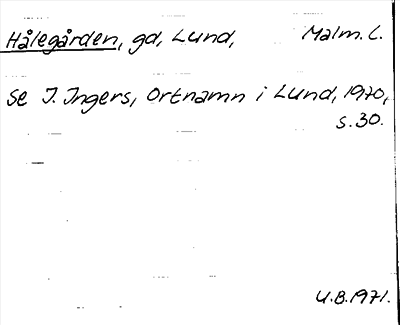 Hålegården, gd, Lund, Malm. l.
Se I. Ingers, Ortnamn i Lund, 1970,
s. 30.
U.B. 1971.